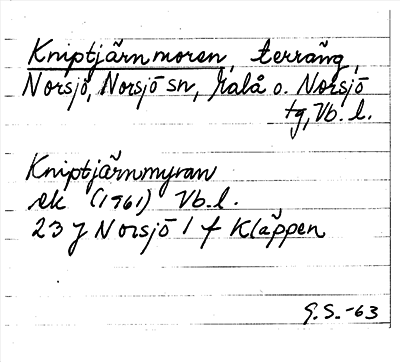 Kniptjärnmoren, terräng,
Norsjö, Norsjö sn, Malå o. Norsjö
tg, Vb. l.
Kniptjärnmyran
ek (1961) Vb. l.
23 J Norsjö 1 f Kläppen
G. S. -63